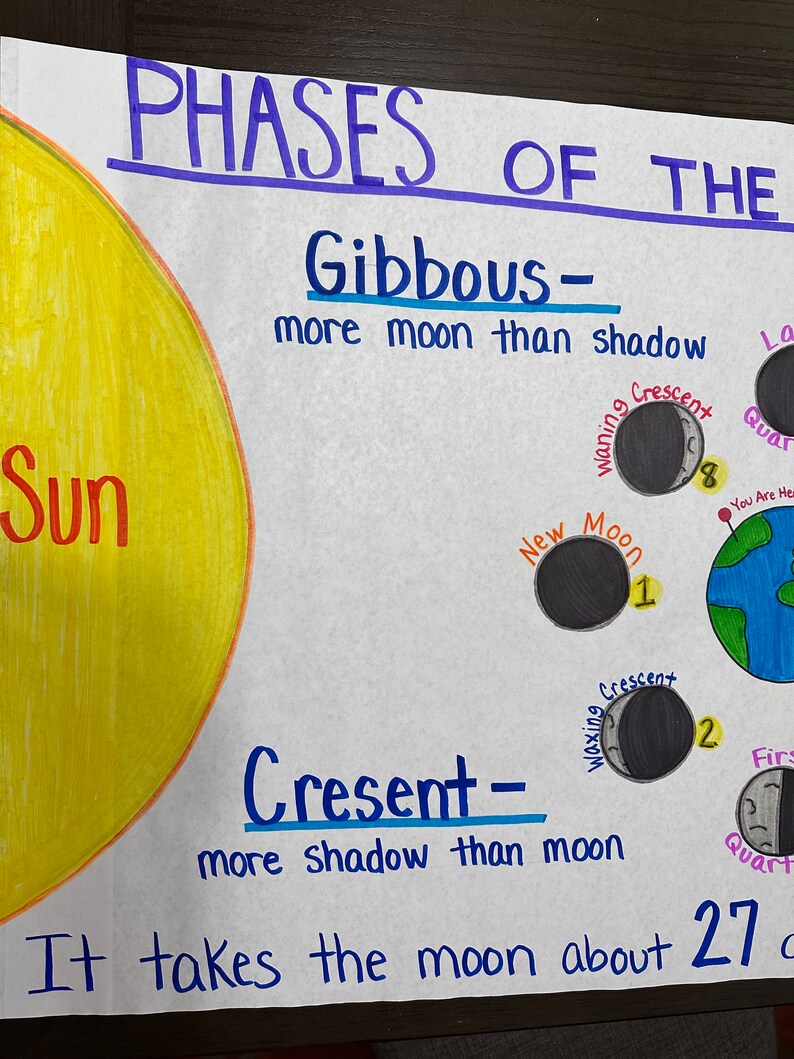 PHASES OF THE
Gibbous-
more moon than shadow
La
Quar
Waning Crescent
8
You Are He
New Moon
1
Sun
Waxing Crescent
2
Firs
Quart
Cresent-
more shadow than moon
It takes the moon about 27